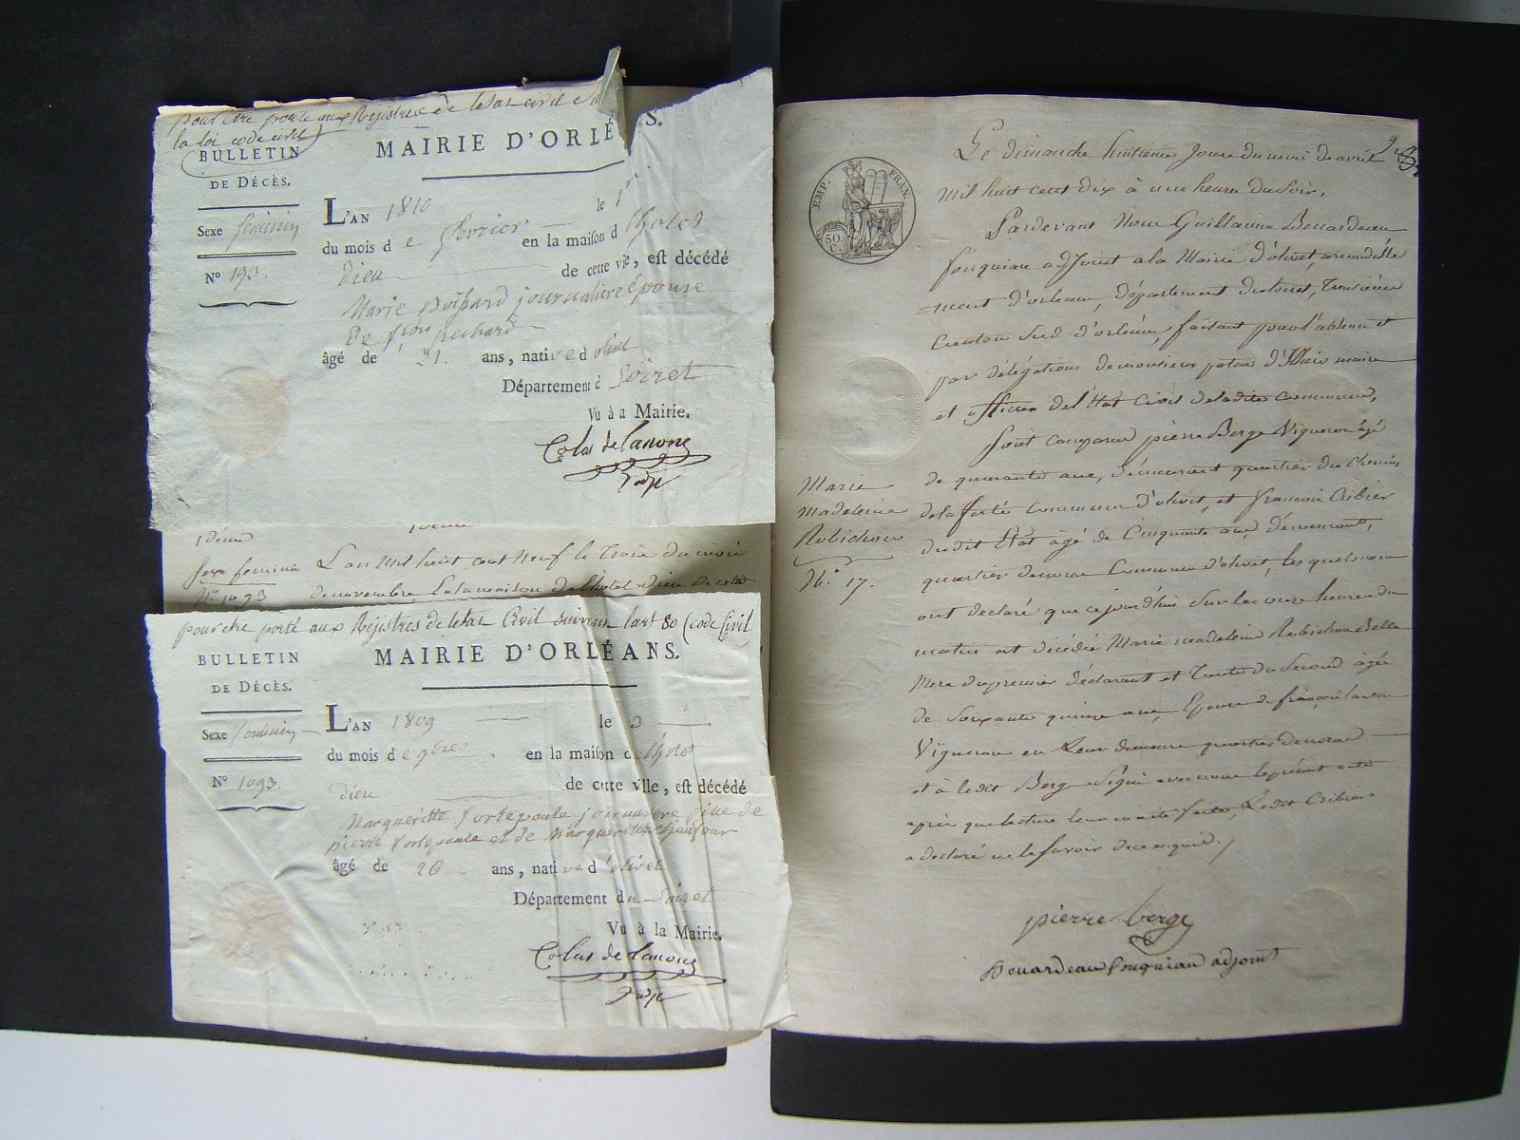 pour être porté aux Registres de letat civil
la loi code civil
BULLETIN
DE DÉCÈS.
MAIRIE D'ORLÉ S.
Sexe féminin
N° 193.
L'AN 1810 le 1er
du mois de février en la maison d l'hotel
Dieu de cette vie, est décédé
Marie journaliere Epouse
De
âgé de 51. ans, native d olivet
Département d Loiret
Vu à a Mairie.
Colas de Lanoue
Idem
Sexe féminin L'an mil huit cent neuf le Trois du mois
N° 1093 de novembre En la maison de l'hotel Dieu de cette
pour être porté aux Régistres de letat Civil suivant lart 80 (code Civil
BULLETIN
DE DÉCÈS.
MAIRIE D'ORLÉANS.
Sexe féminin
N° 1093.
L'AN 1809 le 3
du mois de 9bre en la maison d l'hotel
Dieu de cette ville, est décédé
Margueritte fortepaule journaliere fille de
pierre fortepaule et de Margueritte
âgé de 20 ans, native d olivet
Département du Loiret
Vu à la Mairie.
Colas de Lanoue
EMP. FRAN.
50 C.
Le dimanche huitieme Jour du mois de avril
mil huit cent dix à une heure du Soir,
Pardevant Nous Guillaume Bouardeau
fouquiau adjoint a la Mairie d'olivet, arrondisse
=ment d'orleans, Département du loiret, Troisieme
Canton Sud d'orleans, faisant pour l'absence et
par délégations de monsieur maire
et officier de l'État Civil de ladite Commune,
Sont comparus pierre Berge Vigneron âgé
de quarante ans, démeurant quartier du Chemin
de la ferté Commune d'olivet, et francois Cribier
dudit État âgé de Cinquante ans, démeurant,
quartier Commune d'olivet, lesquels nous
ont declaré que cejourd'hui Sur les onze heures du
matin est décédée Marie madeleine Rubichon
Mere du premier déclarant et Tante du Second âgée
de Soixante quinze ans, Epouse de françois
Vigneron en Leur demeure quartier
et a ledit Berge Signé avec nous le présent acte
après que lecture leur en a été faite, Ledit Cribier
a declaré ne le Savoir de ce enquis. /
Marie
Madeleine
Rubichon
N° 17.
pierre berge
Bouardeau fouquiau adjoint